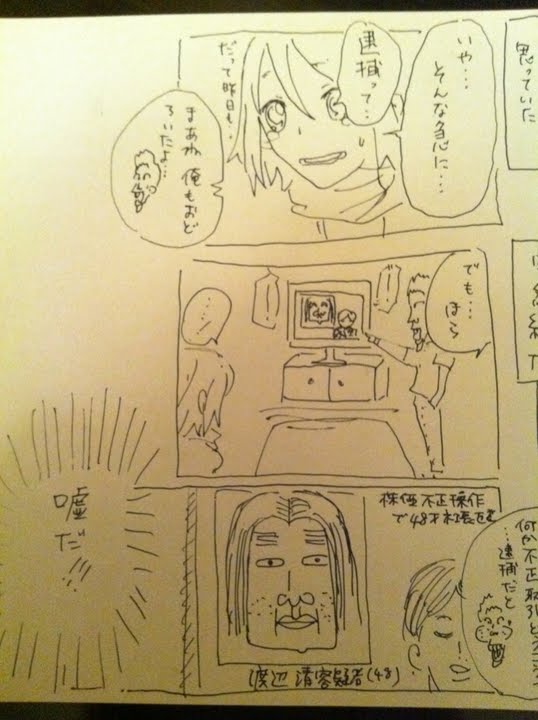 思っていた
いや…
そんな急に…
逮捕って…
だって昨日も…
まあね 俺もおど
ろいたよ…
でも…
ほら
…
何か不正取引とか
…逮捕だと
株価不正操作
で48才
渡辺 清容疑者(48)
嘘だ!!